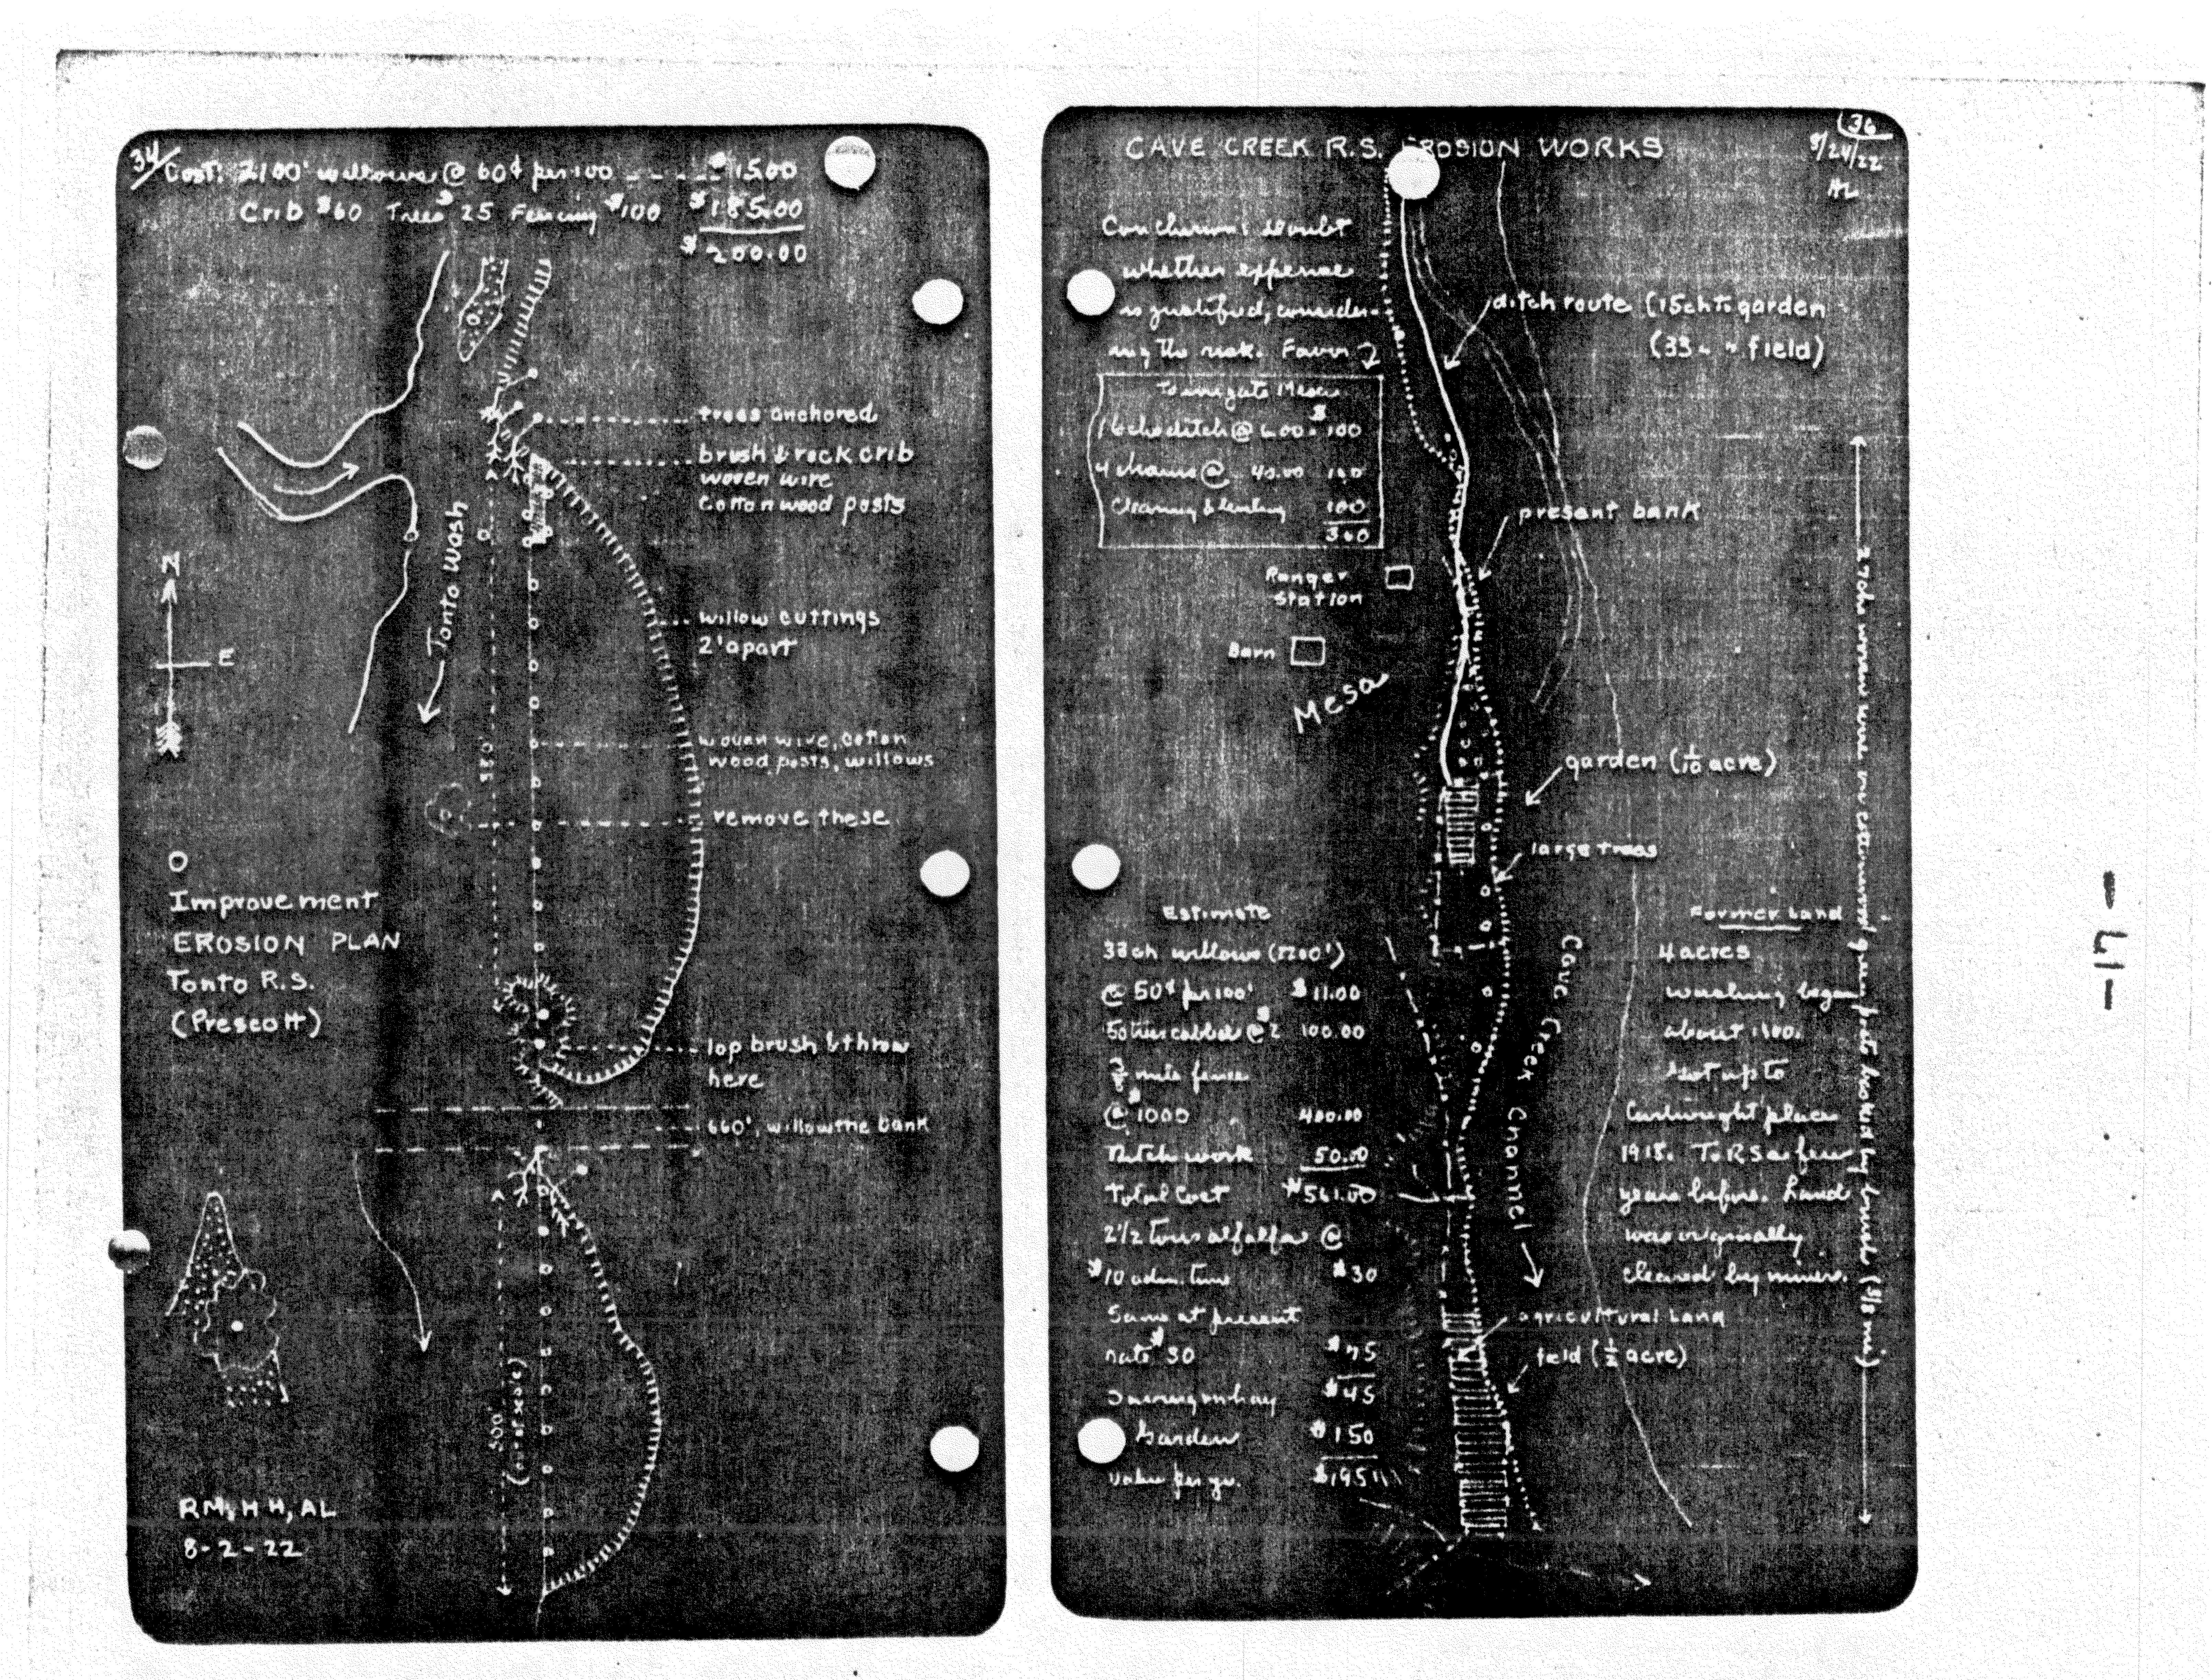 34/
Cost: 2100' willows @ 60¢ per 100 ---- $15.00
Crib $60 Trees $25 Fencing $100 $185.00
$200.00
trees anchored
brush & rock crib
woven wire
cottonwood posts
Tonto Wash
N
E
willow cuttings
2' apart
woven wire, cotton
wood posts, willows
remove these
O
Improvement
EROSION PLAN
Tonto R.S.
(Prescott)
lop brush & throw
here
660', willow the bank
500'
RM, HH, AL
8-2-22
36
8/24/22
AL
CAVE CREEK R.S. EROSION WORKS
Conclusion: doubt
whether expense
is justified, consider-
ing the risk. Favor
To irrigate Mesa
ditch @ 6.00 $100
4 chains @ 40.00 160
Cleaning & 100
360
ditch route (15ch to garden
(33 " " field)
present bank
Ranger
Station
Barn
Mesa
garden (1/10 acre)
large trees
Estimate
33ch willows (2200')
@ 50¢ per 100' $11.00
50 trees cabled @ $2 100.00
mile fence
@ $1000 400.00
Ditch work 50.00
Total Cost $561.00
2 1/2 tons alfalfa @
$10 $30
Same at present
rate $30 $75
Saving on hay $45
Garden $150
Value per yr. $195
Cave Creek Channel
Former Land
4 acres
washing began
about
up to
Cartwright place
1918. To RS a few
years before. Land
was originally
cleared by miners.
agricultural Land
field (1/2 acre)
woven wire on cottonwood green posts backed by brush (3/8 mi)
-17-